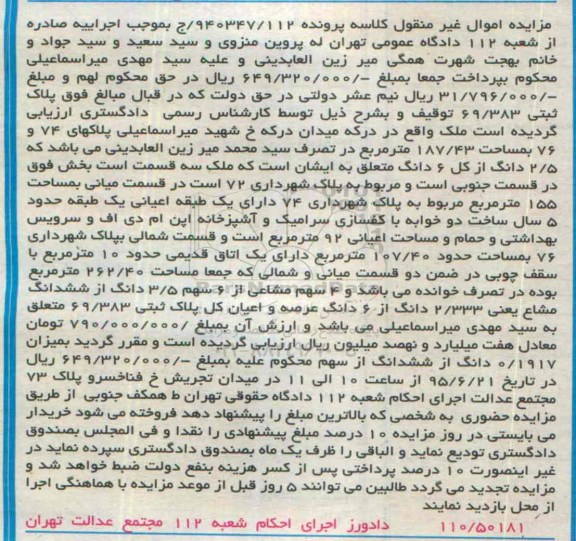 مزایده اموال غیر منقول کلاسه پرونده ۹۴۰۳۴۷/۱۱۲/ج بموجب اجراییه صادره
از شعبه ۱۱۲ دادگاه عمومی تهران له پروین منزوی و سید سعید و سید جواد و
خانم بهجت شهرت همگی میر زین العابدینی و علیه سید مهدی میراسماعیلی
محکوم بپرداخت جمعا بمبلغ -/۶۴۹/۳۲۰/۰۰۰ ریال در حق محکوم لهم و مبلغ
-/۳۱/۷۹۶/۰۰۰ ریال نیم عشر دولتی در حق دولت که در قبال مبالغ فوق پلاک
ثبتی ۶۹/۳۸۳ توقیف و بشرح ذیل توسط کارشناس رسمی دادگستری ارزیابی
گردیده است ملک واقع در درکه میدان درکه خ شهید میراسماعیلی پلاکهای ۷۴ و
۷۶ بمساحت ۱۸۷/۴۳ مترمربع در تصرف سید محمد میر زین العابدینی می باشد که
۲/۵ دانگ از کل ۶ دانگ متعلق به ایشان است که ملک سه قسمت است بخش فوق
در قسمت جنوبی است و مربوط به پلاک شهرداری ۷۲ است در قسمت میانی بمساحت
۱۵۵ مترمربع مربوط به پلاک شهرداری ۷۴ دارای یک طبقه اعیانی یک طبقه حدود
۵ سال ساخت دو خوابه با کفسازی سرامیک و آشپزخانه اپن ام دی اف و سرویس
بهداشتی و حمام و مساحت اعیانی ۹۲ مترمربع است و قسمت شمالی بپلاک شهرداری
۷۶ بمساحت حدود ۱۰۷/۴۰ مترمربع دارای یک اتاق قدیمی حدود ۱۰ مترمربع با
سقف چوبی در ضمن دو قسمت میانی و شمالی که جمعا مساحت ۲۶۲/۴۰ مترمربع
بوده در تصرف خوانده می باشد و ۴ سهم مشاعی از ۶ سهم ۳/۵ دانگ از ششدانگ
مشاع یعنی ۲/۳۳۳ دانگ از ۶ دانگ عرصه و اعیان کل پلاک ثبتی ۶۹/۳۸۳ متعلق
به سید مهدی میراسماعیلی می باشد و ارزش آن بمبلغ /۷۹۰/۰۰۰/۰۰۰ تومان
معادل هفت میلیارد و نهصد میلیون ریال ارزیابی گردیده است و مقرر گردید بمیزان
۰/۱۹۱۷ دانگ از ششدانگ از سهم محکوم علیه بمبلغ -/۶۴۹/۳۲۰/۰۰۰ ریال
در تاریخ ۹۵/۶/۲۱ از ساعت ۱۰ الی ۱۱ در میدان تجریش خ فناخسرو پلاک ۷۳
مجتمع عدالت اجرای احکام شعبه ۱۱۲ دادگاه حقوقی تهران ط همکف جنوبی از طریق
مزایده حضوری به شخصی که بالاترین مبلغ را پیشنهاد دهد فروخته می شود خریدار
می بایستی در روز مزایده ۱۰ درصد مبلغ پیشنهادی را نقدا و فی المجلس بصندوق
دادگستری تودیع نماید و الباقی را ظرف یک ماه بصندوق دادگستری سپرده نماید در
غیر اینصورت ۱۰ درصد پرداختی پس از کسر هزینه بنفع دولت ضبط خواهد شد و
مزایده تجدید می گردد طالبین می توانند ۵ روز قبل از موعد مزایده با هماهنگی اجرا
از محل بازدید نمایند
۱۱۰/۵۰۱۸۱ دادورز اجرای احکام شعبه ۱۱۲ مجتمع عدالت تهران